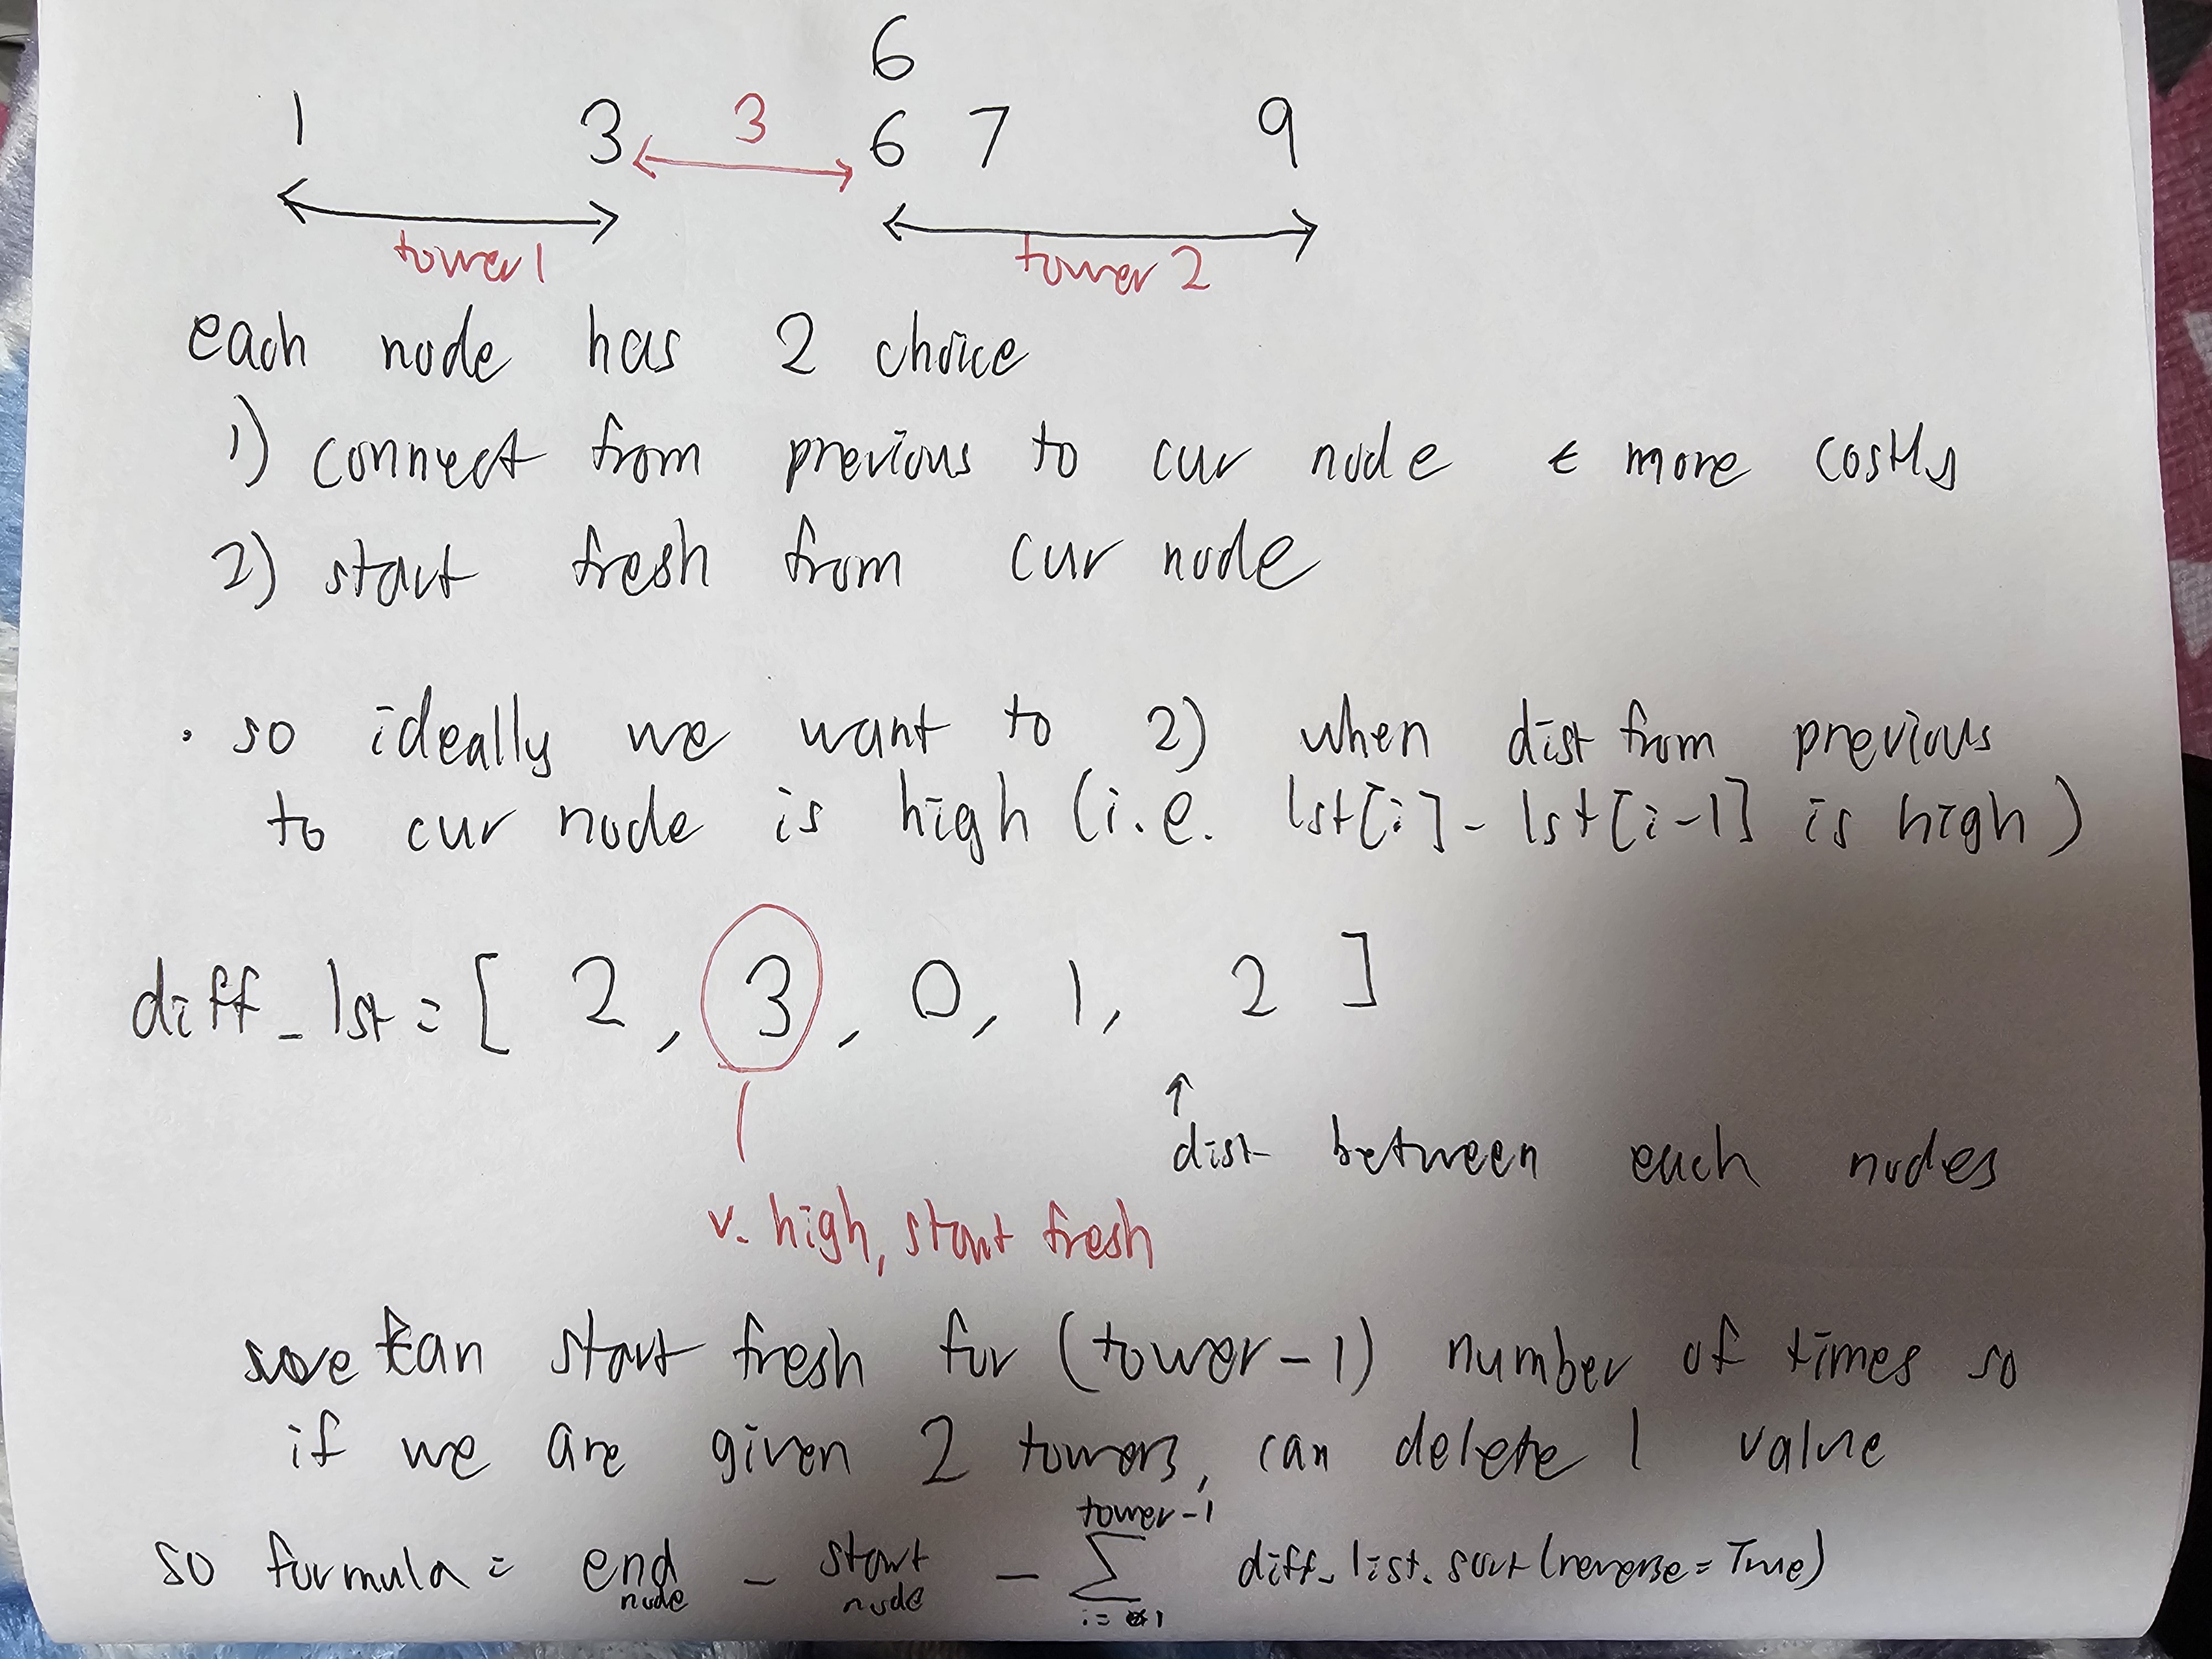 6
1 3 3 6 7 9
tower 1 tower 2
each node has 2 choice
1) connect from previous to cur node ← more costly
2) start fresh from cur node
• so ideally we want to 2) when dist from previous
to cur node is high (i.e. lst[i] - lst[i-1] is high)
diff_lst = [ 2, 3, 0, 1, 2 ]
↑
dist between each nodes
v. high, start fresh
can start fresh for (tower-1) number of times so
if we are given 2 towers, can delete 1 value
tower-1
so formula = end node - start node - Σ diff_list.sort(reverse=True)
i=1